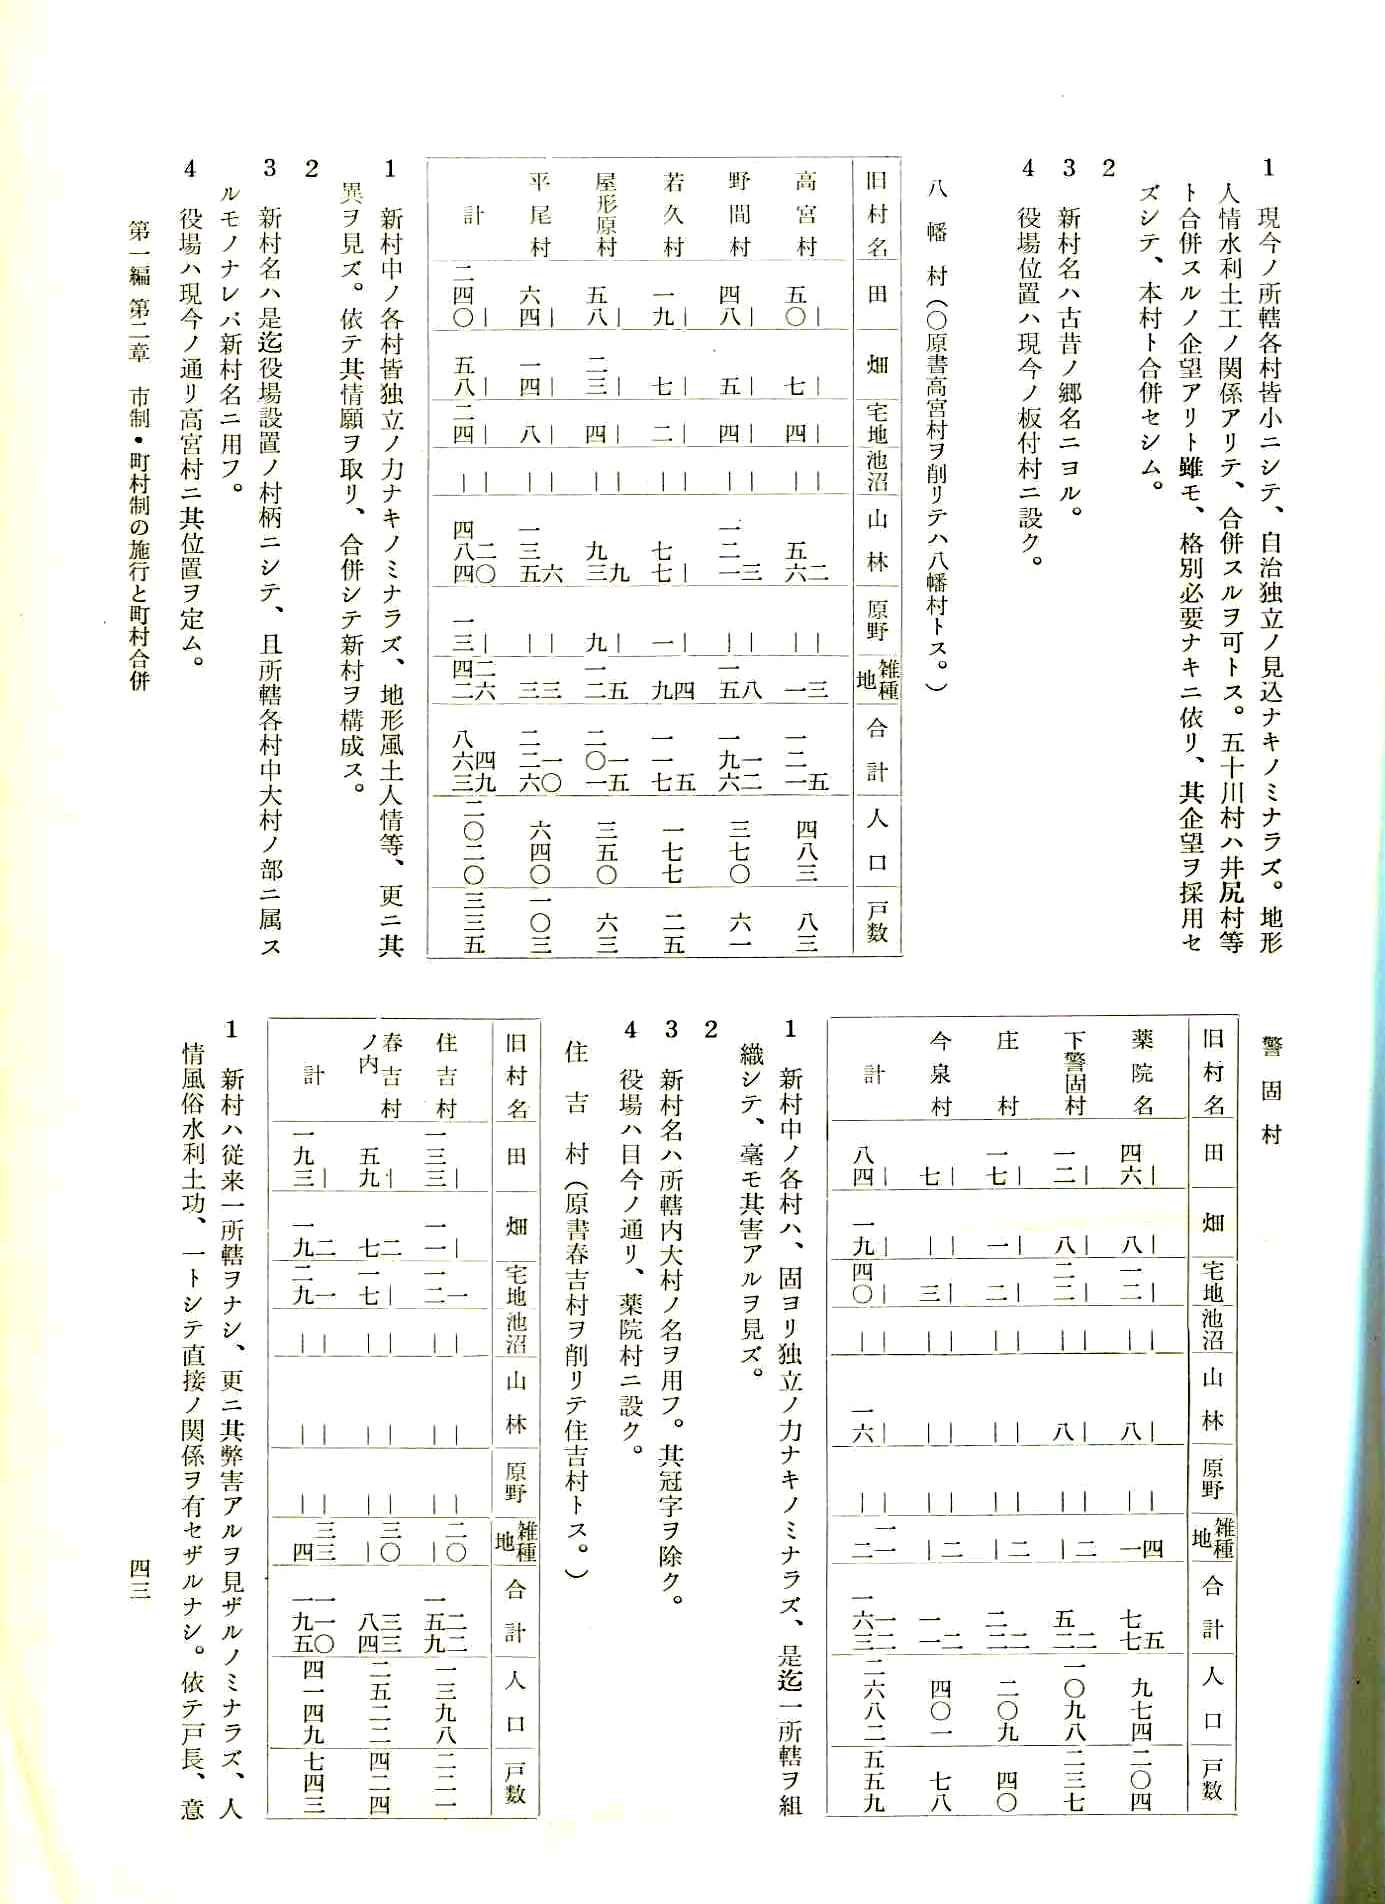 1　現今ノ所轄各村皆小ニシテ、自治独立ノ見込ナキノミナラズ。地形
人情水利土工ノ関係アリテ、合併スルヲ可トス。五十川村ハ井尻村等
ト合併スルノ企望アリト雖モ、格別必要ナキニ依リ、其企望ヲ採用セ
ズシテ、本村ト合併セシム。
2
3　新村名ハ古昔ノ郷名ニヨル。
4　役場位置ハ現今ノ板付村ニ設ク。
八幡村（〇原書高宮村ヲ削リテハ八幡村トス。）
旧村名　田　畑　宅地　池沼　山林　原野　雑種地　合計　人口　戸数
高宮村　五〇｜　七｜　四｜　｜｜　五六二　｜｜　一三　一二一五　四八三　八三
野間村　四八｜　五｜　四｜　｜｜　一二一三　｜｜　一五八　一九六一二　三七〇　六一
若久村　一九｜　七｜　二｜　｜｜　七七｜　一｜　九四　一一七五　一七七　二五
屋形原村　五八｜　二三｜　四｜　｜｜　九三九　九｜　一二五　二〇一一五　三五〇　六三
平尾村　六四｜　一四｜　八｜　｜｜　一三五六　｜｜　三三　二二六一〇　六四〇　一〇三
計　二四〇｜　五八｜　二四｜　｜｜　四八四二〇　一三｜　四二二六　八六三四九　二〇二〇　三三五
1　新村中ノ各村皆独立ノ力ナキノミナラズ、地形風土人情等、更ニ其
異ヲ見ズ。依テ其情願ヲ取リ、合併シテ新村ヲ構成ス。
2
3　新村名ハ是迄役場設置ノ村柄ニシテ、且所轄各村中大村ノ部ニ属ス
ルモノナレバ新村名ニ用フ。
4　役場ハ現今ノ通リ高宮村ニ其位置ヲ定ム。
警固村
旧村名　田　畑　宅地　池沼　山林　原野　雑種地　合計　人口　戸数
薬院名　四六｜　八｜　一二｜　｜｜　八｜　｜｜　一四　七七五　九七四　二〇四
下警固村　一二｜　八｜　二二｜　｜｜　八｜　｜｜　｜二　五二二　一〇九八　二三七
庄村　一七｜　一｜　二｜　｜｜　｜｜　｜｜　｜二　二二二　二〇九　四〇
今泉村　七｜　｜｜　三｜　｜｜　｜｜　｜｜　｜二　一一二　四〇一　七八
計　八四｜　一九｜　四〇｜　｜｜　一六｜　｜｜　二一一　一六三一二　二六八二　五五九
1　新村中ノ各村ハ、固ヨリ独立ノ力ナキノミナラズ、是迄一所轄ヲ組
織シテ、毫モ其害アルヲ見ズ。
2
3　新村名ハ所轄内大村ノ名ヲ用フ。其冠字ヲ除ク。
4　役場ハ目今ノ通リ、薬院村ニ設ク。
住吉村（原書春吉村ヲ削リテ住吉村トス。）
旧村名　田　畑　宅地　池沼　山林　原野　雑種地　合計　人口　戸数
住吉村　一三三｜　一一｜　一二一　｜｜　｜｜　｜｜　二｜〇　一五九二二　一三九八　二二一
春吉村ノ内　五九｜　七二　一七｜　｜｜　｜｜　｜｜　三｜〇　八四三三　二五二二　四二四
計　一九三｜　一九二　二九一　｜｜　｜｜　｜｜　四三三　一九五一一〇　四一四九　七四三
1　新村ハ従来一所轄ヲナシ、更ニ其弊害アルヲ見ザルノミナラズ、人
情風俗水利土功、一トシテ直接ノ関係ヲ有セザルナシ。依テ戸長、意
第一編　第二章　市制・町村制の施行と町村合併
四三